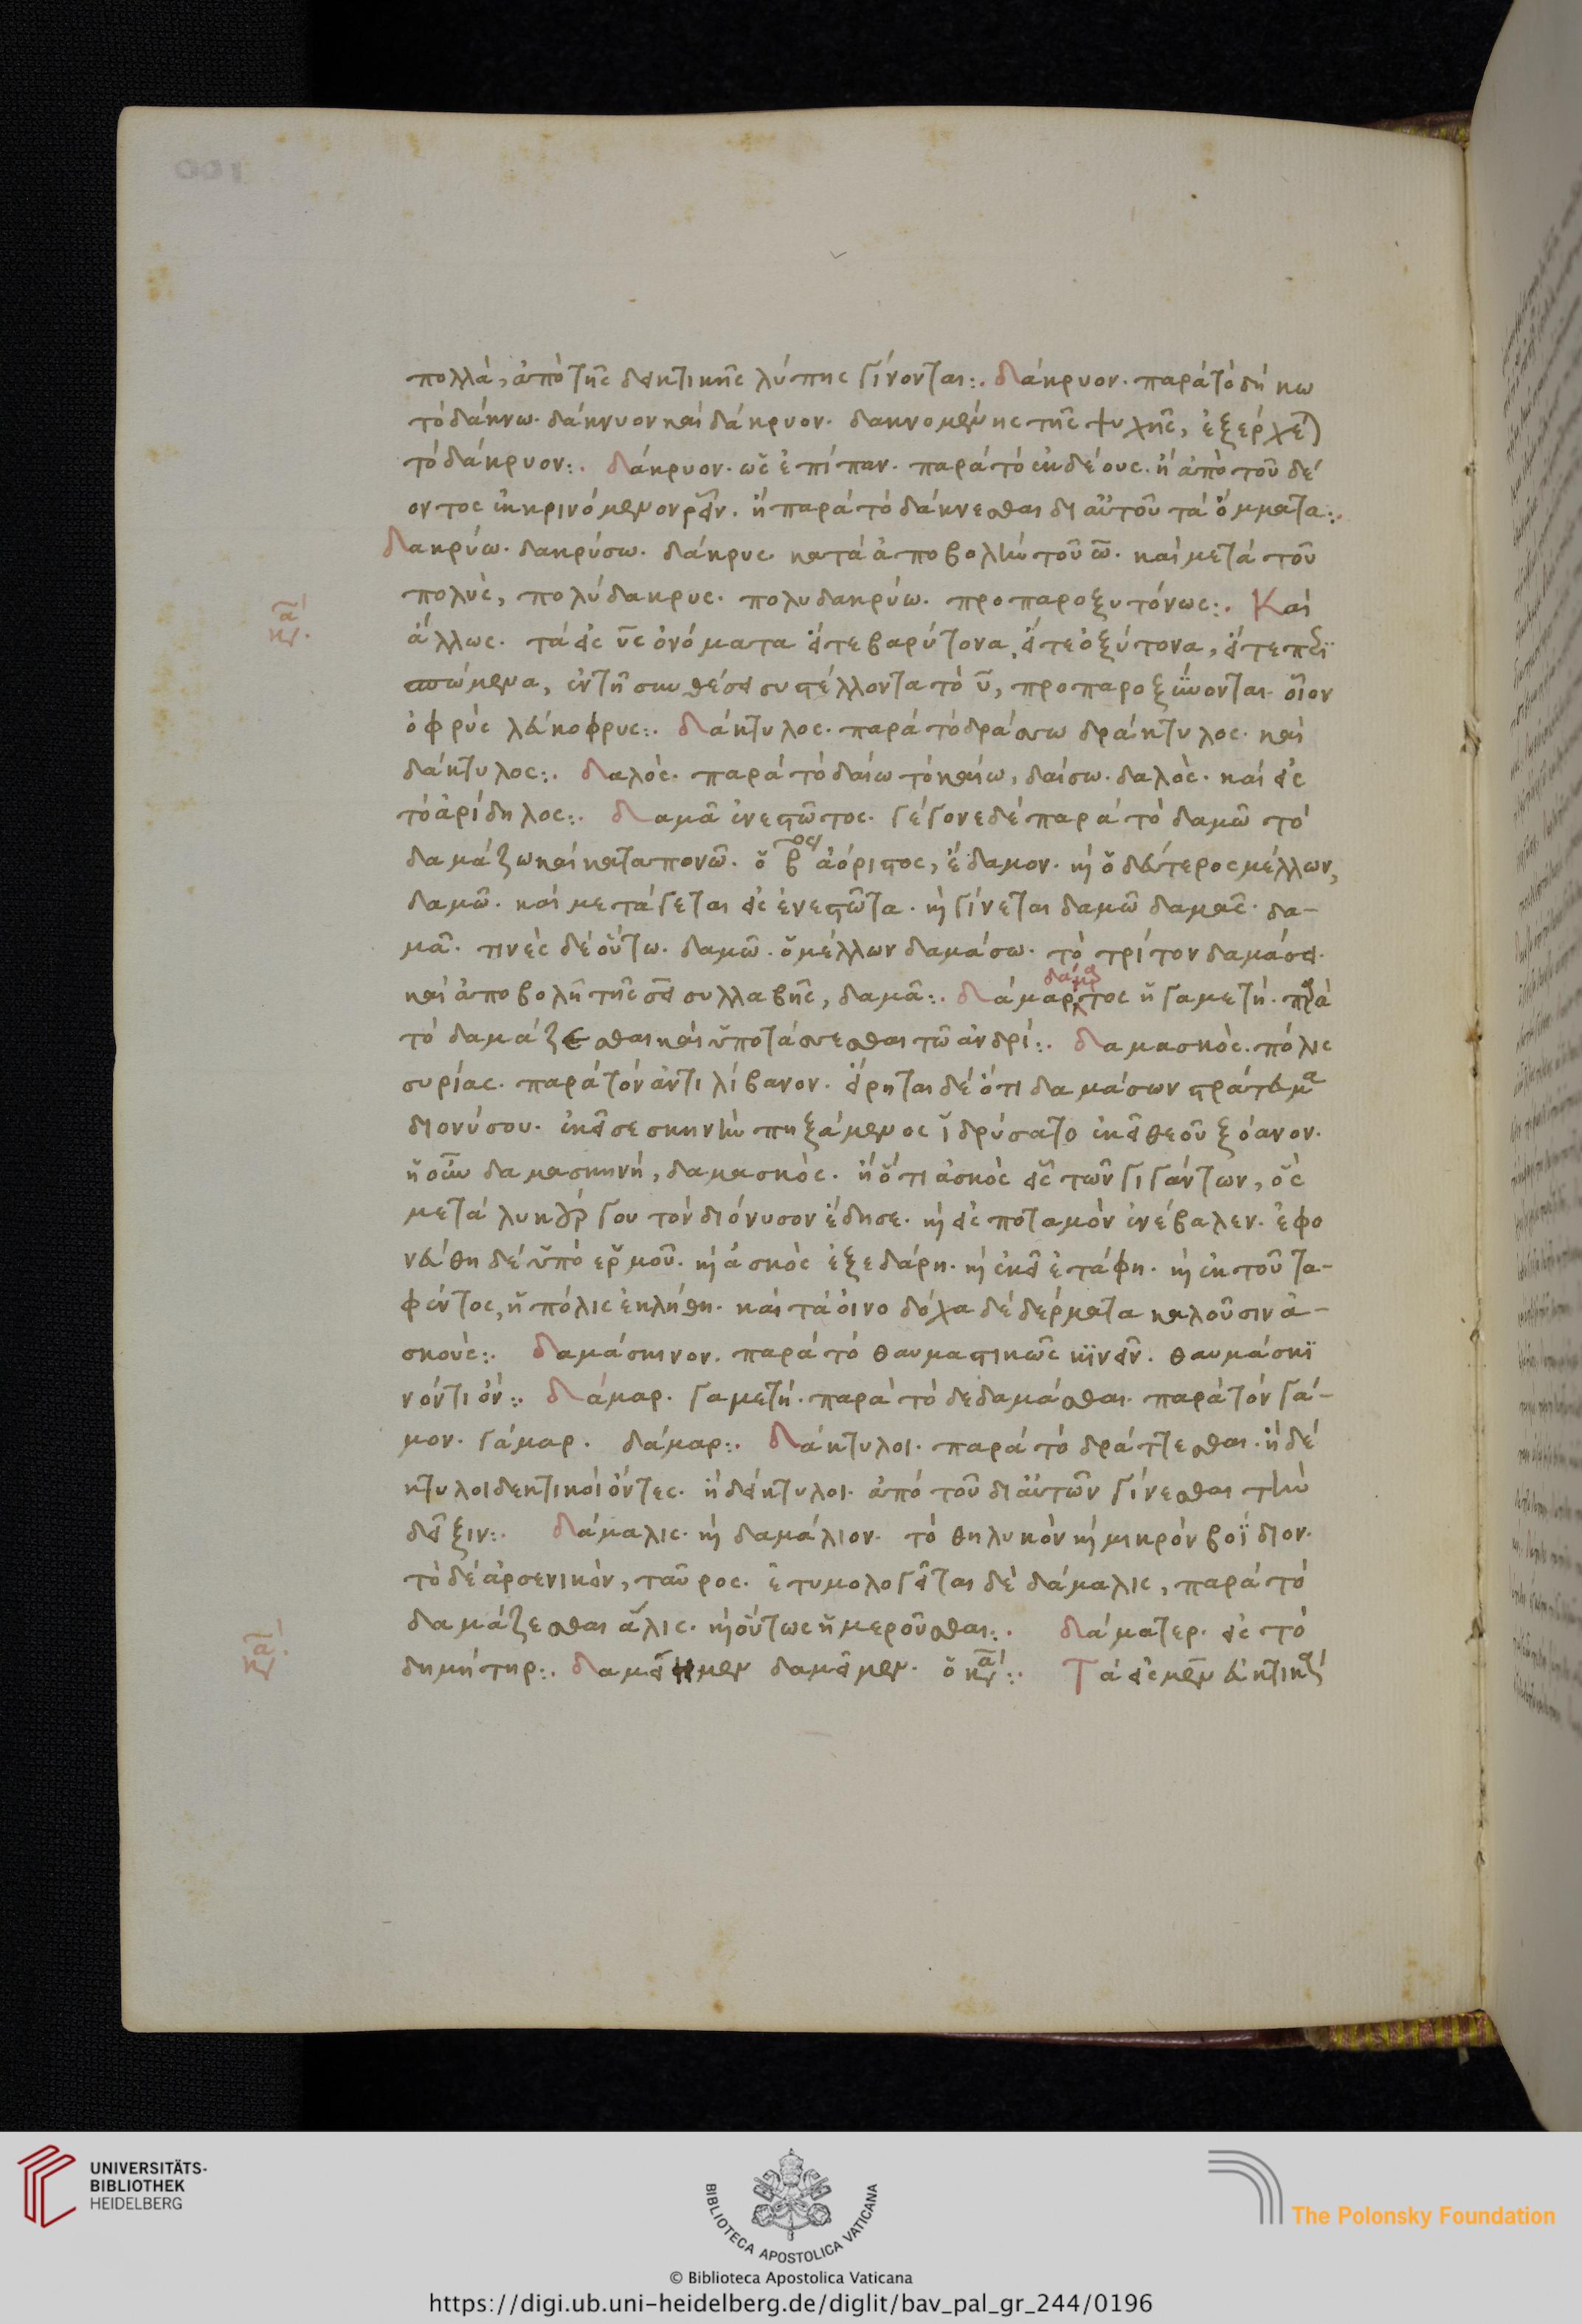 πολλά, ἀπὸ τῆς δηκτικῆς λύπης γίνονται:. δάκρυον. παρὰ τὸ δήκω
τὸ δάκνω. δάκνυον καὶ δάκρυον. δακνομένης τῆς ψυχῆς, ἐξέρχε)
τὸ δάκρυον:. δάκρυον. ὡς ἐπίπαν. παρὰ τὸ ἐκ δέους. ἢ ἀπὸ τοῦ δέ
οντος ἐκκρινόμενον ῥεῖν. ἢ παρὰ τὸ δάκνεσθαι δι αὐτοῦ τὰ ὄμματα:.
δακρύω. δακρύσω. δάκρυς κατὰ ἀποβολὴν τοῦ ω. καὶ μετὰ τοῦ
πολὺς, πολύδακρυς. πολυδακρύω. προπαροξυτόνως:. Καὶ
ἄλλως. τὰ εἰς υς ὀνόματα εἴτε βαρύτονα, εἴτε ὀξύτονα, εἴτε περι
σπώμενα, ἐν τῇ συνθέσει συστέλλοντα τὸ υ, προπαροξύνονται. οἷον
ὀφρὺς λεύκοφρυς:. δάκτυλος. παρὰ τὸ δράσσω δράκτυλος. καὶ
δάκτυλος:. δαλὸς. παρὰ τὸ δαίω τὸ καίω, δαίσω. δαλὸς. καὶ εἰς
τὸ ἀρίδηλος:. δαμᾶ ἐνεστῶτος. γέγονε δὲ παρὰ τὸ δαμῶ τὸ
δαμάζω καὶ καταπονῶ. ὁ βος ἀόριστος, ἔδαμον. καὶ ὁ δεύτερος μέλλων,
δαμῶ. καὶ μετάγεται εἰς ἐνεστῶτα. καὶ γίνεται δαμῶ δαμᾶς. δα-
μᾶ. τινὲς δὲ οὕτω. δαμῶ. ὁ μέλλων δαμάσω. τὸ τρίτον δαμάσει.
καὶ ἀποβολῇ τῆς σει συλλαβῆς, δαμᾶ:. δάμαρτος ἡ γαμετή. παρὰ
τὸ δαμάζεσθαι καὶ ὑποτάσσεσθαι τῷ ἀνδρί:. δαμασκὸς. πόλις
συρίας. παρὰ τὸν ἀντιλίβανον. εἴρηται δὲ ὅτι δαμάσων στράτευμα
διονύσου. ἐκεῖσε σκηνὴν πηξάμενος ἱδρύσατο ἐκεῖ θεοῦ ξόανον.
ἡ οὖν δαμασκηνή, δαμασκὸς. ἢ ὅτι ἀσκὸς εἷς τῶν γιγάντων, ὃς
μετὰ λυκούργου τὸν διόνυσον ἔδησε. καὶ εἰς ποταμὸν ἐνέβαλεν. ἐφο
νεύθη δὲ ὑπὸ ἑρμοῦ. καὶ ἀσκὸς ἐξεδάρη. καὶ ἐκεῖ ἐτάφη. καὶ ἐκ τοῦ τα-
φέντος, ἡ πόλις ἐκλήθη. καὶ τὰ οἰνοδόχα δὲ δέρματα καλοῦσιν ἀ-
σκούς:. δαμάσκινον. παρὰ τὸ θαυμαστικῶς κϊνεῖν. θαυμάσκϊ
νόν τι ὄν:. δάμαρ. γαμετή. παρὰ τὸ δεδαμάσθαι. παρὰ τὸν γά-
μον. γάμαρ. δάμαρ:. δάκτυλοι. παρὰ τὸ δράττεσθαι. ἢ δέ
κτυλοι δεκτικοὶ ὄντες. ἢ δείκτυλοι. ἀπὸ τοῦ δι αὐτῶν γίνεσθαι τὴν
δεῖξιν:. δάμαλις. καὶ δαμάλιον. τὸ θηλυκὸν καὶ μικρὸν βοΐδιον.
τὸ δὲ ἀρσενικόν, ταῦρος. ἐτυμολογεῖται δὲ δάμαλις, παρὰ τὸ
δαμάζεσθαι ἅλις. καὶ οὕτως ἡμεροῦσθαι:. δάματερ. εἰς τὸ
δημήτηρ:. δαμείημεν δαμεῖμεν. ὁ κα:. Τὰ εἰς μεν εὐκτικὰ